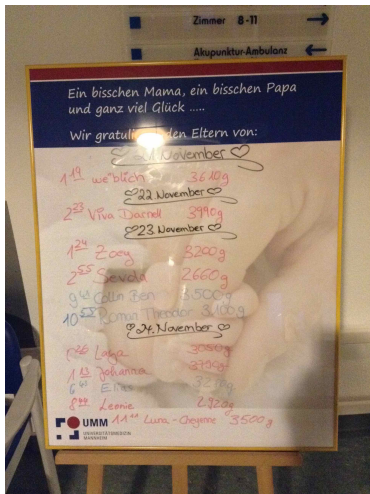 Zimmer 8-11 →
← Akupunktur-Ambulanz
Ein bisschen Mama, ein bisschen Papa
und ganz viel Glück .....
Wir den Eltern von:
♡ November ♡
1 19 weiblich 3610g
♡ 22 November ♡
2 23 Viva Darnell 3990g
♡ 23 November ♡
1 24 Zoey 3200g
2 55 Sevda 2660g
Collin Ben 3.500g
10 Roman Theodor 3.100g
♡ 24. November ♡
3050g
1 13 Johanna
6 Elias
8 Leonie 2920g
11 Luna - Cheyenne 3500g
UMM
UNIVERSITÄTSMEDIZIN
MANNHEIM